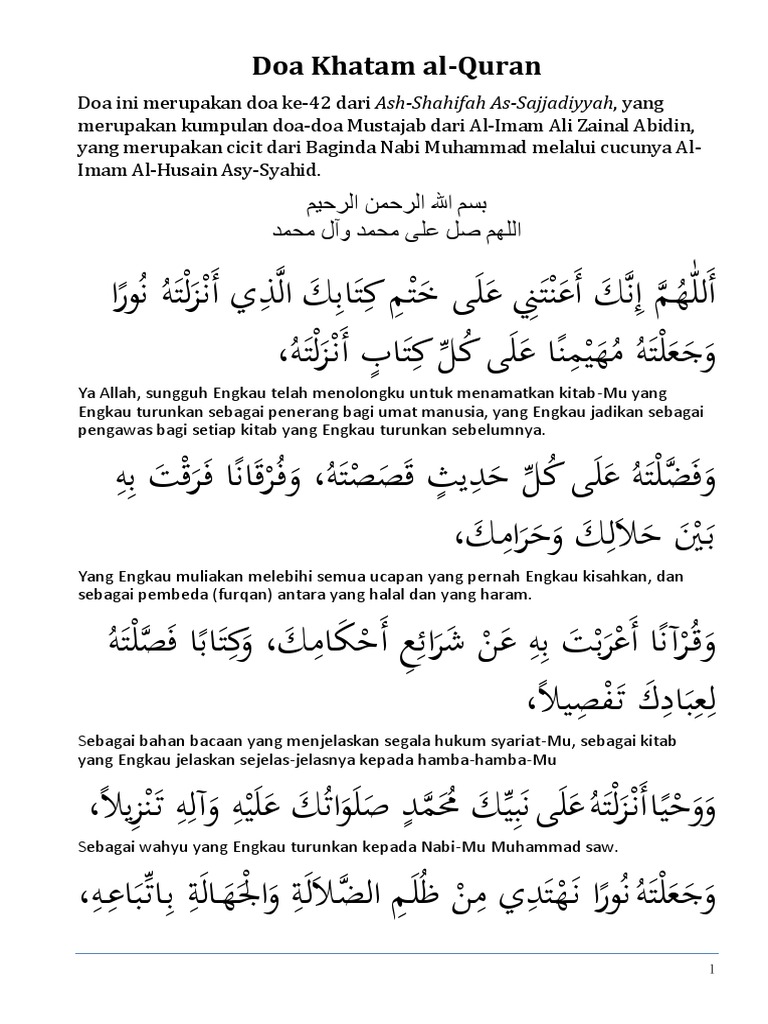 Doa Khatam al-Quran
Doa ini merupakan doa ke-42 dari Ash-Shahifah As-Sajjadiyyah, yang
merupakan kumpulan doa-doa Mustajab dari Al-Imam Ali Zainal Abidin,
yang merupakan cicit dari Baginda Nabi Muhammad melalui cucunya Al-
Imam Al-Husain Asy-Syahid.
بسم الله الرحمن الرحيم
اللهم صل على محمد وآل محمد
أَللّٰهُمَّ إِنَّكَ أَعَنْتَنِي عَلَى خَتْمِ كِتَابِكَ الَّذِي أَنْزَلْتَهُ نُورًا
وَجَعَلْتَهُ مُهَيْمِنًا عَلَى كُلِّ كِتَابٍ أَنْزَلْتَهُ،
Ya Allah, sungguh Engkau telah menolongku untuk menamatkan kitab-Mu yang
Engkau turunkan sebagai penerang bagi umat manusia, yang Engkau jadikan sebagai
pengawas bagi setiap kitab yang Engkau turunkan sebelumnya.
وَفَضَّلْتَهُ عَلَى كُلِّ حَدِيثٍ قَصَصْتَهُ، وَفُرْقَانًا فَرَقْتَ بِهِ
بَيْنَ حَلاَلِكَ وَحَرَامِكَ،
Yang Engkau muliakan melebihi semua ucapan yang pernah Engkau kisahkan, dan
sebagai pembeda (furqan) antara yang halal dan yang haram.
وَقُرْآنًا أَعْرَبْتَ بِهِ عَنْ شَرَائِعِ أَحْكَامِكَ، وَكِتَابًا فَصَّلْتَهُ
لِعِبَادِكَ تَفْصِيلاً،
Sebagai bahan bacaan yang menjelaskan segala hukum syariat-Mu, sebagai kitab
yang Engkau jelaskan sejelas-jelasnya kepada hamba-hamba-Mu
وَوَحْيًا أَنْزَلْتَهُ عَلَى نَبِيِّكَ مُحَمَّدٍ صَلَوَاتُكَ عَلَيْهِ وَآلِهِ تَنْزِيلاً،
Sebagai wahyu yang Engkau turunkan kepada Nabi-Mu Muhammad saw.
وَجَعَلْتَهُ نُورًا نَهْتَدِي مِنْ ظُلَمِ الضَّلاَلَةِ وَالْجَهَالَةِ بِاتِّبَاعِهِ،
1